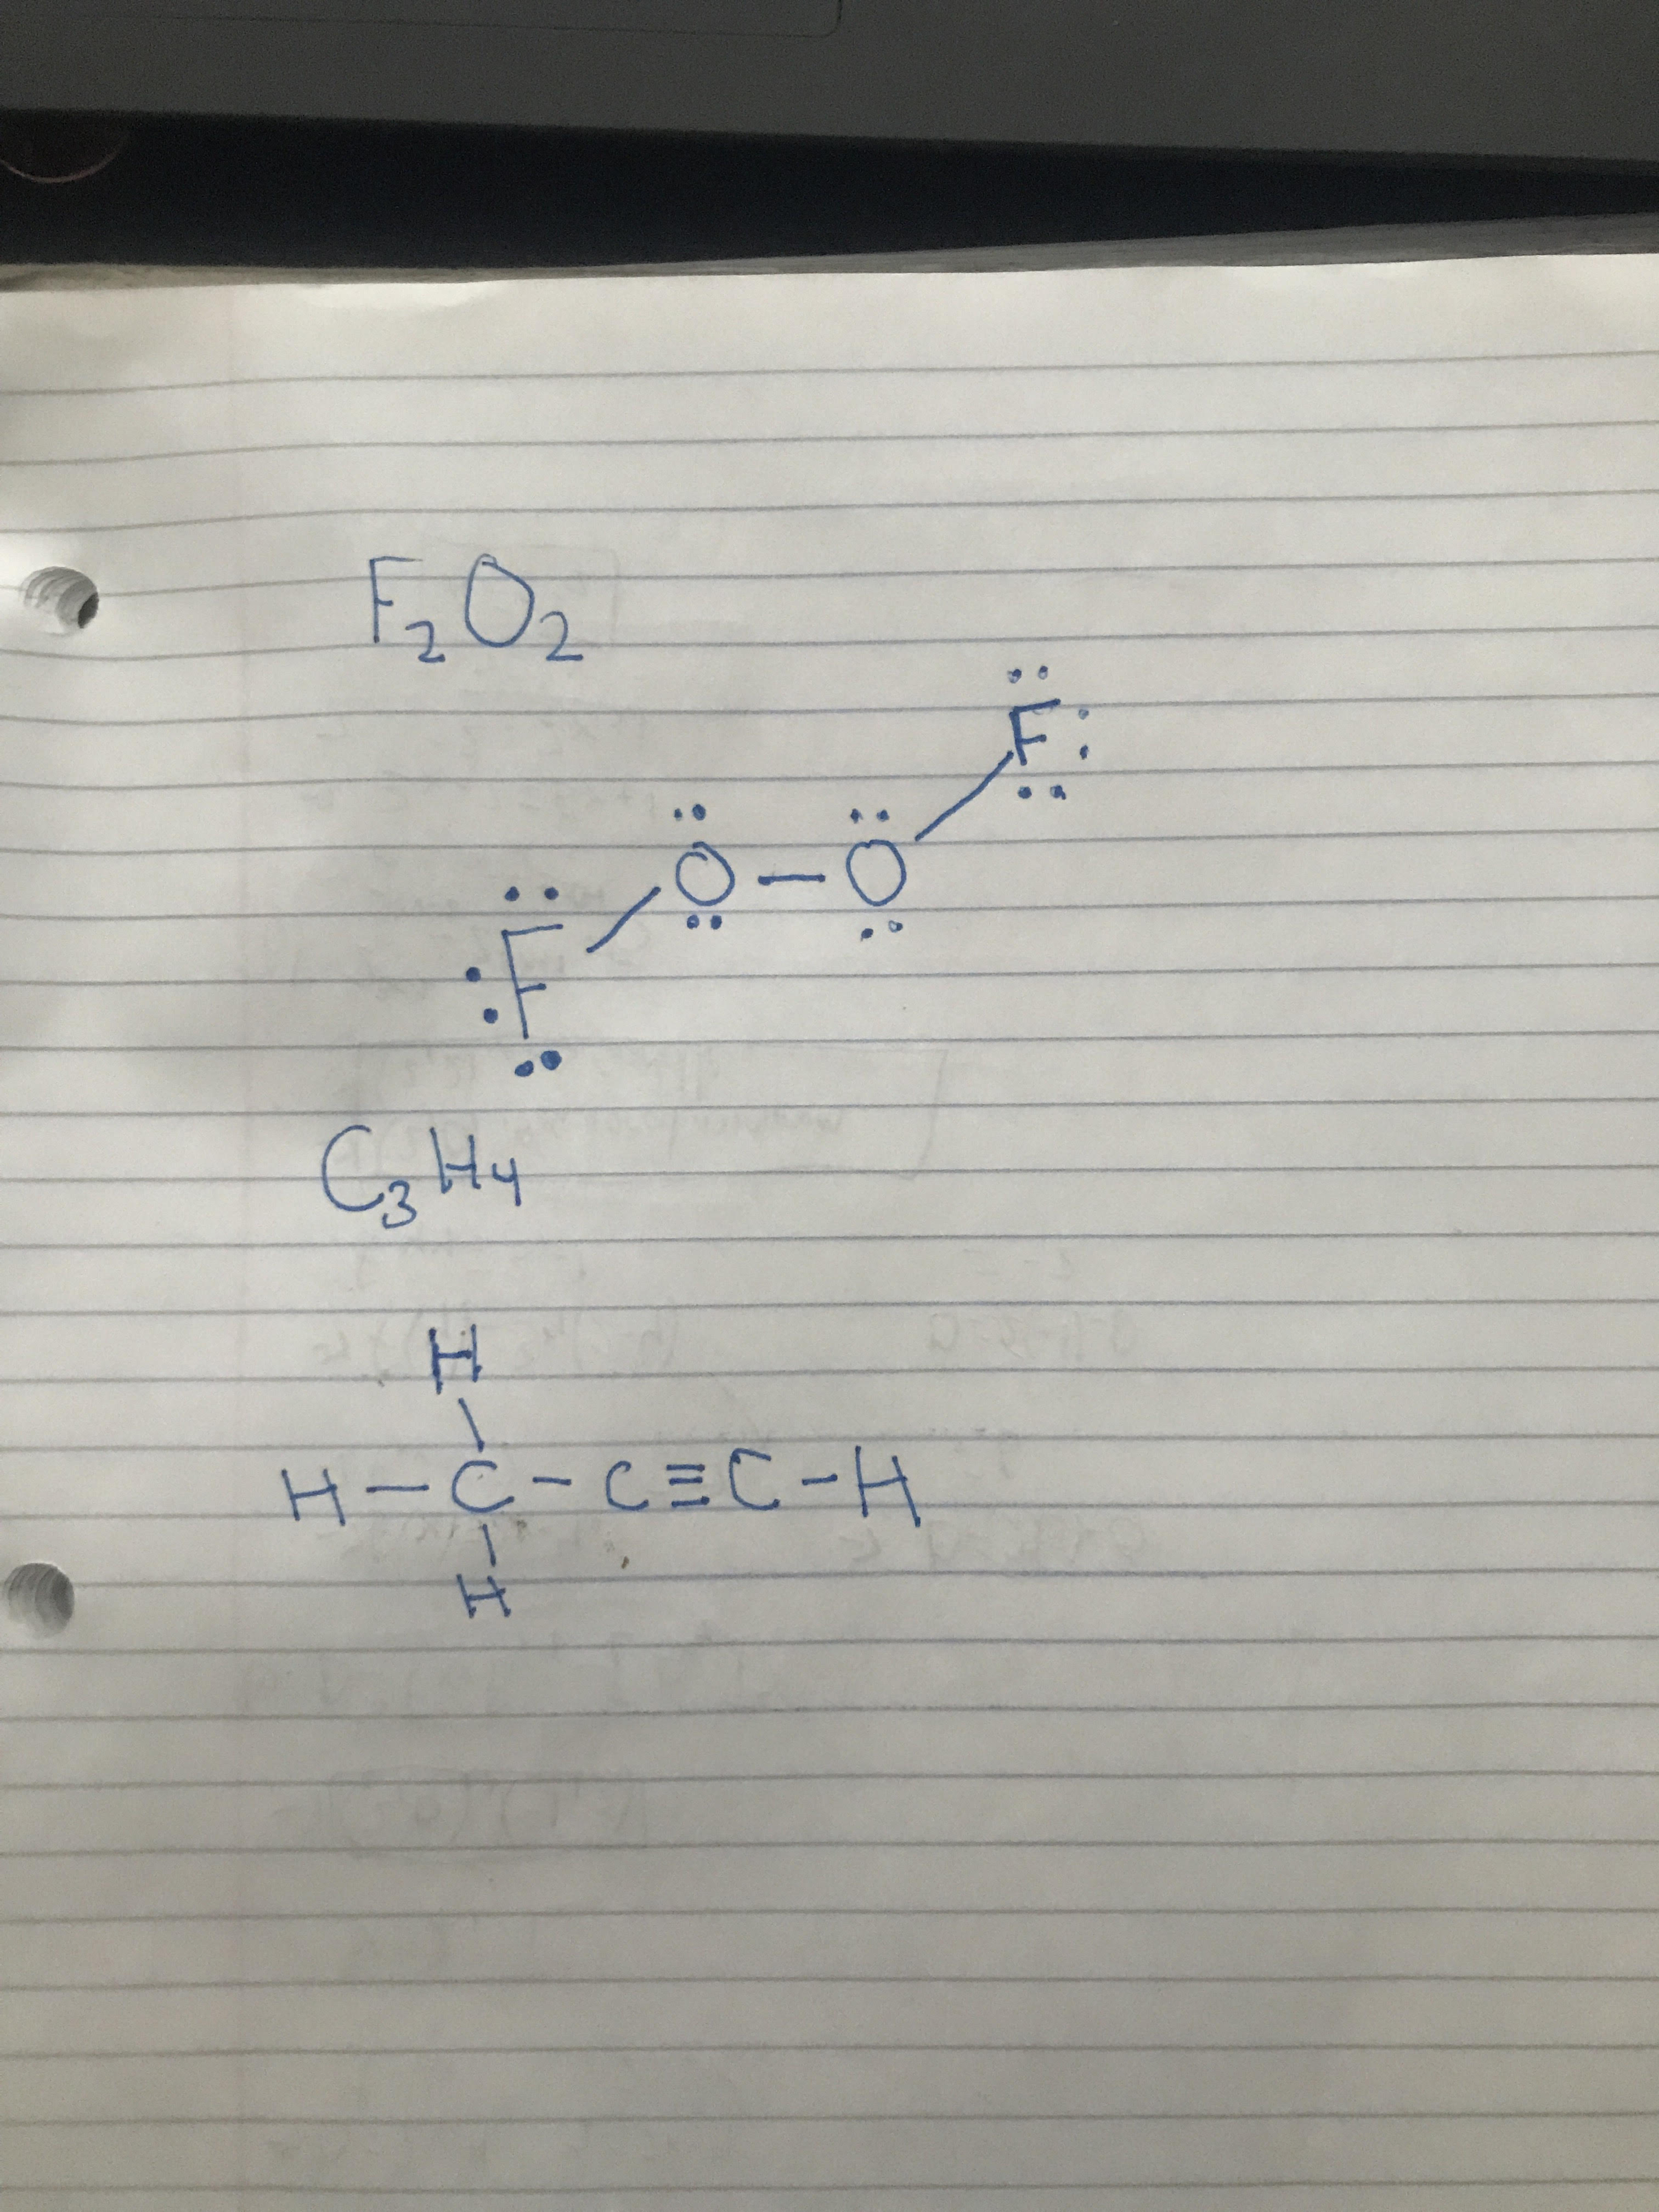 F₂O₂
F
O – O
F
C₃H₄
H
H – C – C ≡ C – H
H